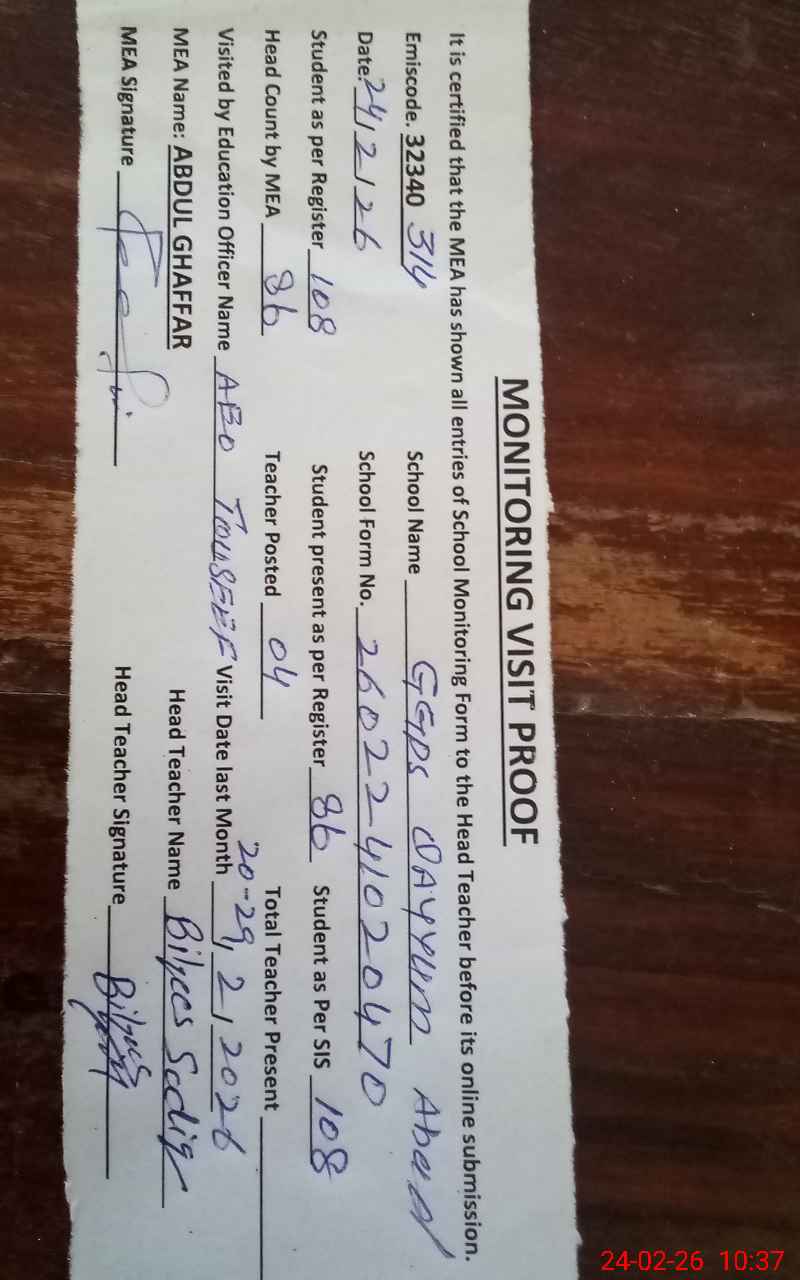 MONITORING VISIT PROOF
It is certified that the MEA has shown all entries of School Monitoring Form to the Head Teacher before its online submission.
Emiscode. 32340 314 School Name GGPS QAYYUM Abad
Date: 24/2/26 School Form No. 2602241020470
Student as per Register 108 Student present as per Register 86 Student as Per SIS 108
Head Count by MEA 86 Teacher Posted 04 Total Teacher Present
Visited by Education Officer Name AEO TOUSEEF Visit Date last Month 20-29/2/2026
MEA Name: ABDUL GHAFFAR Head Teacher Name Bilqees Sadiq
MEA Signature Head Teacher Signature Bilqees
24-02-26 10:37